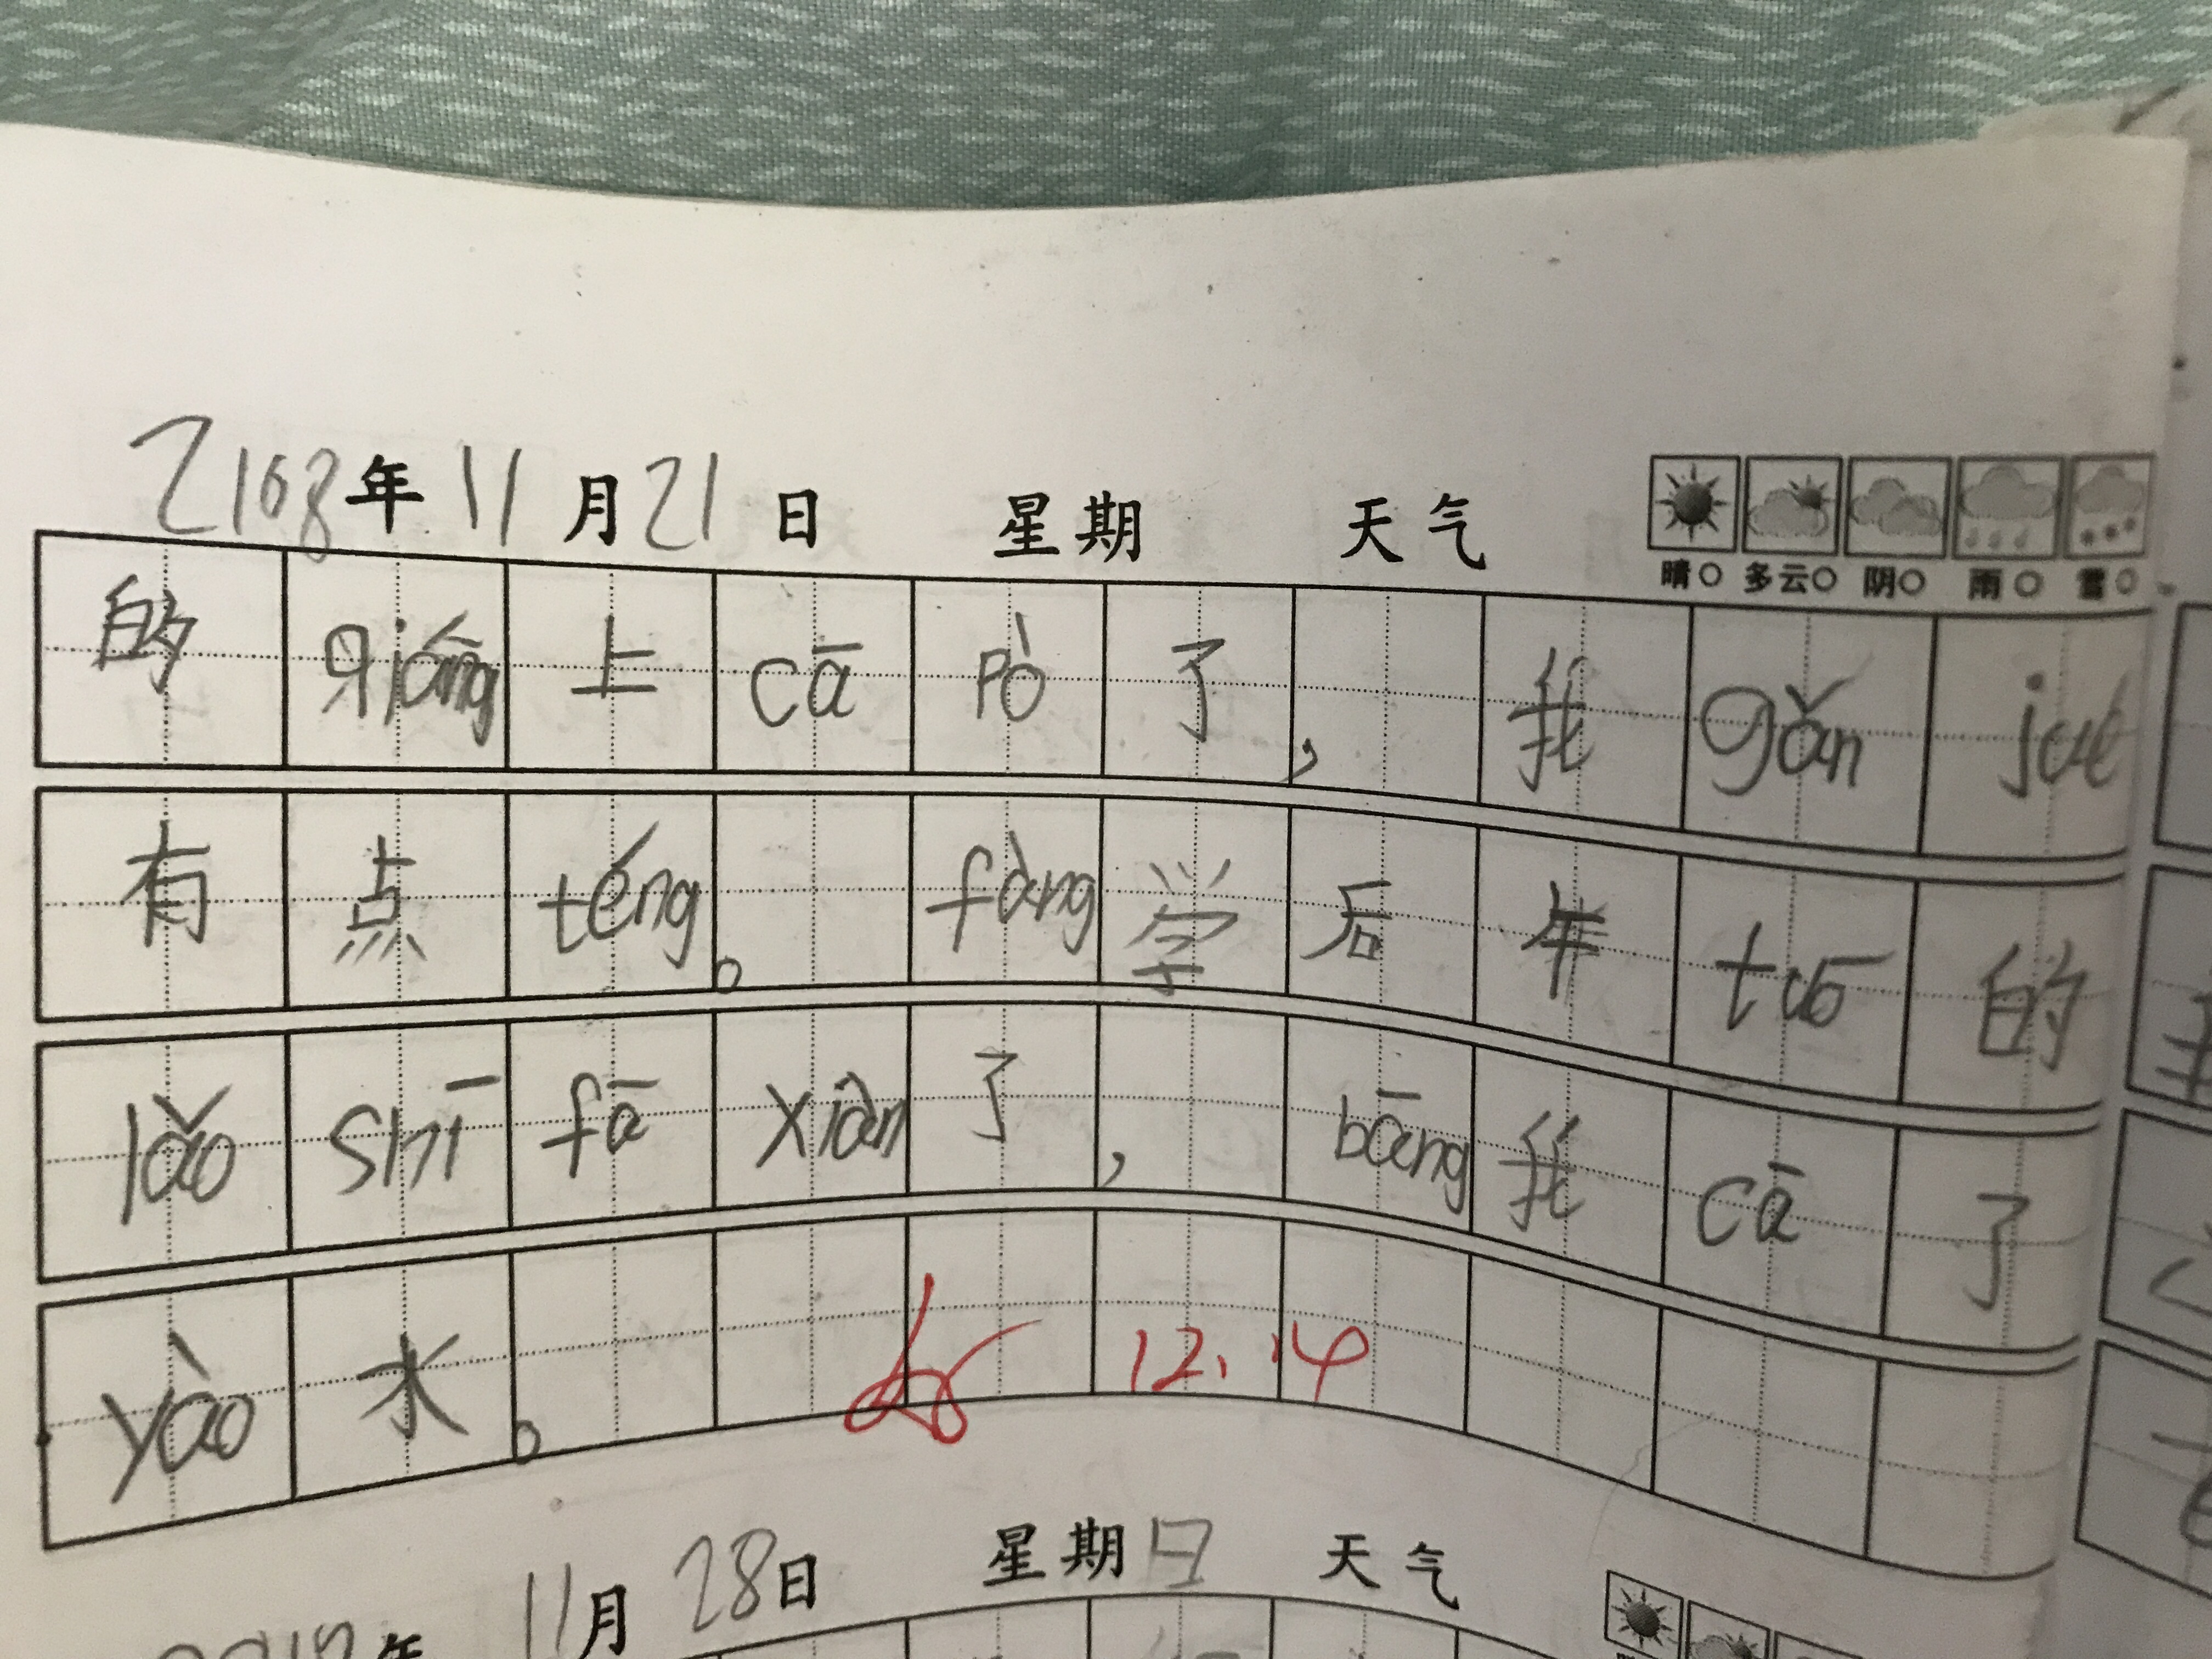 2168年11月21日 星期 天气
晴○ 多云○ 阴○ 雨○ 雪○
的qiáng上cā pò了，我gǎn jué
有点téng。fàng学后年tuō的
lǎo shī fā xiàn了，bāng我cā了
yào水。
好 12.14
年 11月28日 星期日 天气